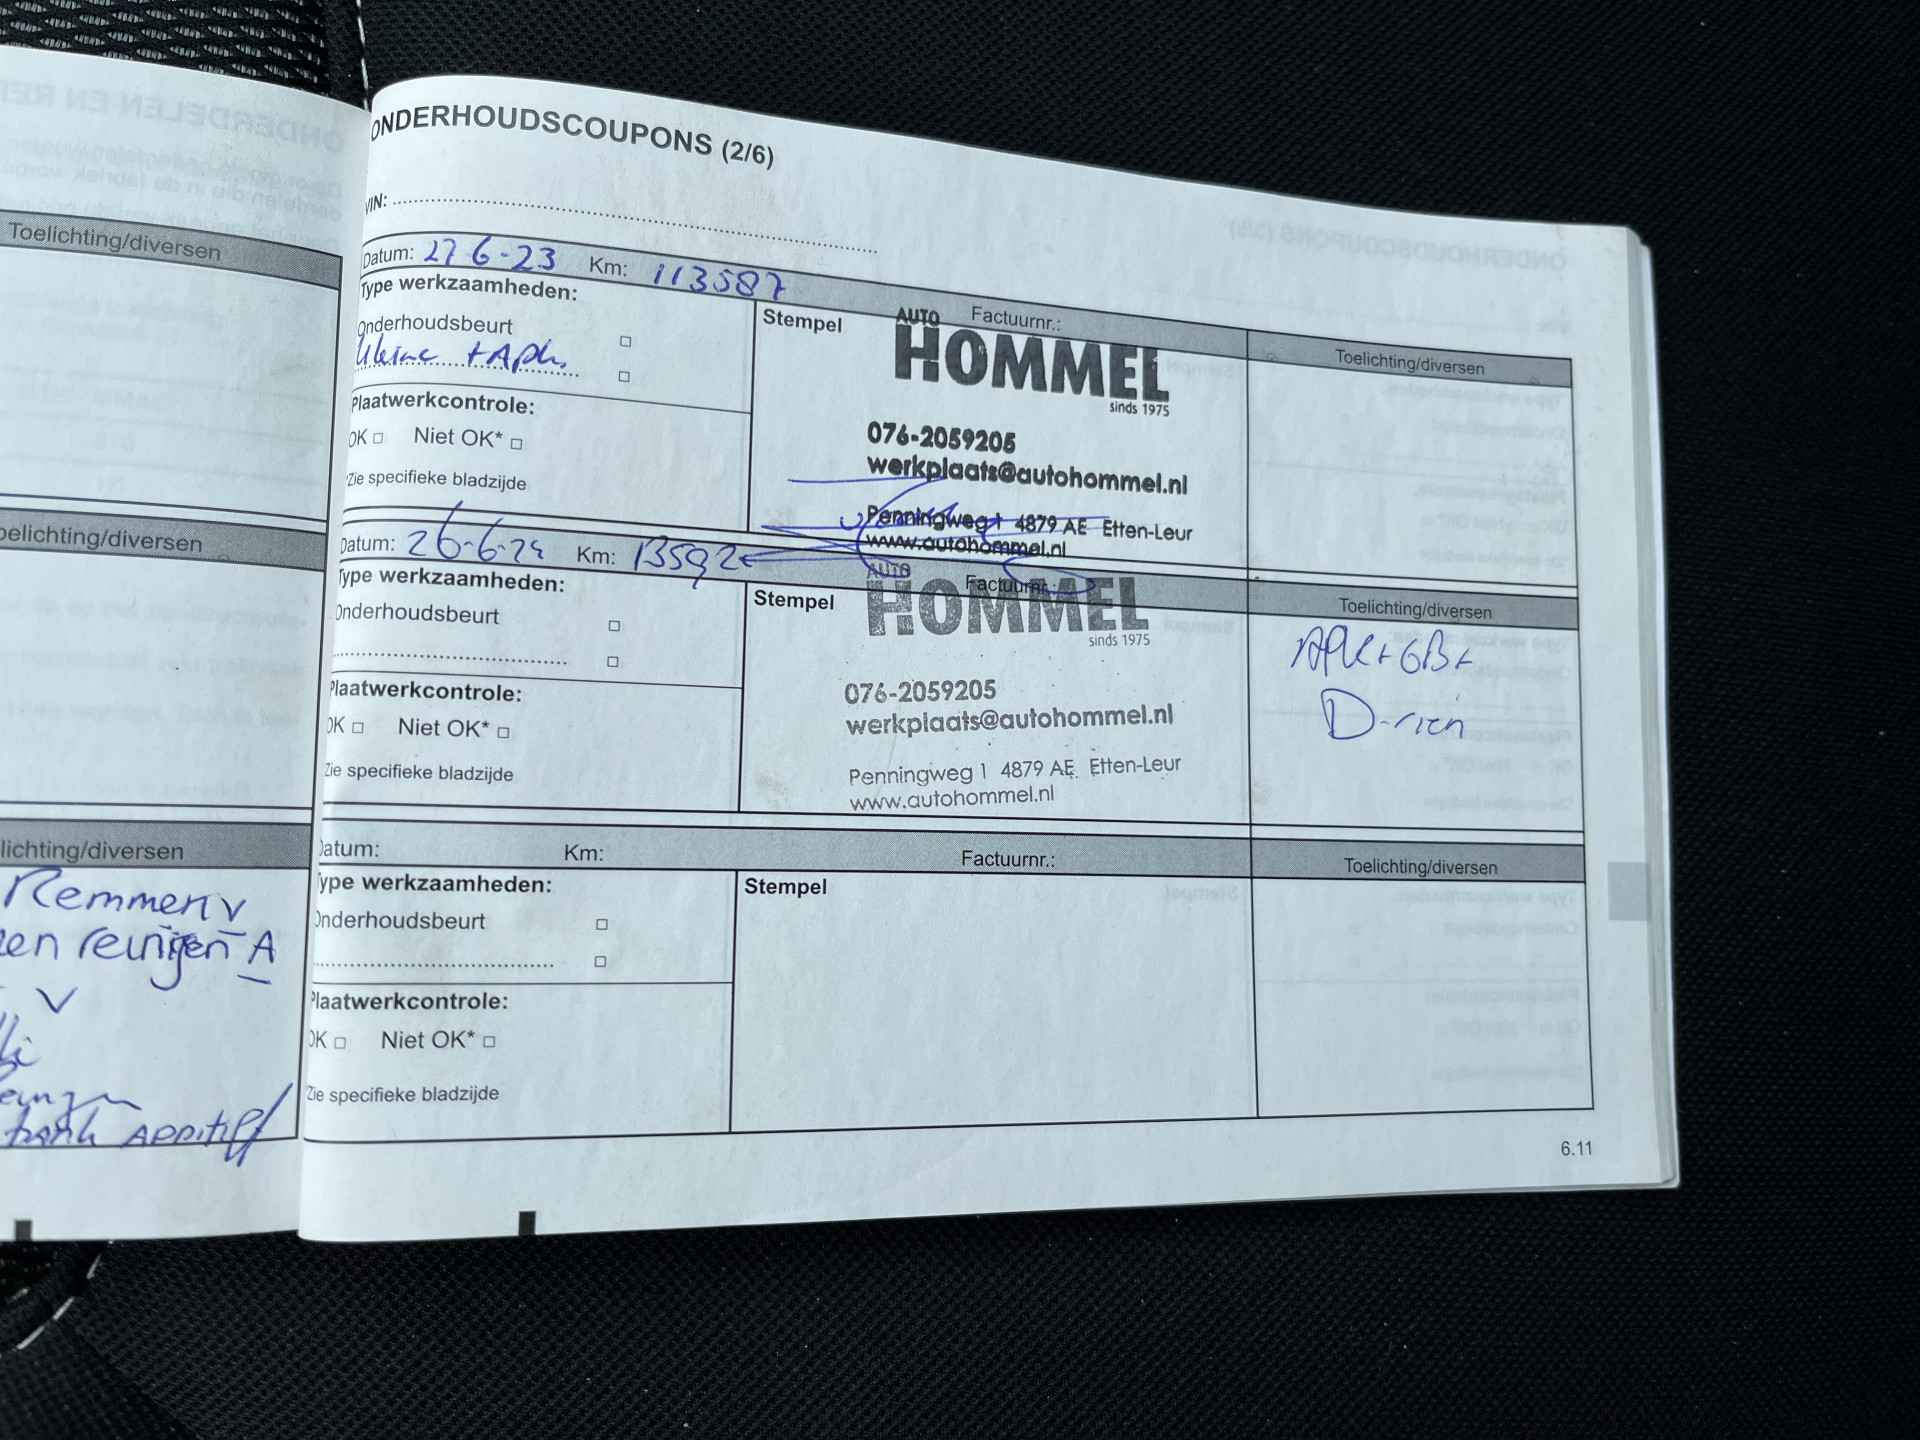 Toelichting/diversen
oelichting/diversen
lichting/diversen
Remmen v
en reinigen A
v
tank additief
ONDERHOUDSCOUPONS (2/6)
VIN:
Datum: 27-6-23 Km: 113587 Factuurnr.:
Type werkzaamheden:
Onderhoudsbeurt
kleine + Apk.
Plaatwerkcontrole:
OK Niet OK*
*Zie specifieke bladzijde
Stempel
AUTO
HOMMEL
sinds 1975
076-2059205
werkplaats@autohommel.nl
Penningweg 1 4879 AE Etten-Leur
www.autohommel.nl
Toelichting/diversen
Datum: 26-6-24 Km: Factuurnr.:
Type werkzaamheden:
Onderhoudsbeurt
Plaatwerkcontrole:
OK Niet OK*
Zie specifieke bladzijde
Stempel
AUTO
HOMMEL
sinds 1975
076-2059205
werkplaats@autohommel.nl
Penningweg 1 4879 AE Etten-Leur
www.autohommel.nl
Toelichting/diversen
APK+GB+
D-riem
Datum: Km: Factuurnr.:
Type werkzaamheden:
Onderhoudsbeurt
Plaatwerkcontrole:
OK Niet OK*
Zie specifieke bladzijde
Stempel
Toelichting/diversen
6.11